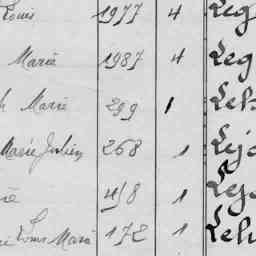 Louis 1977 4 Leg
Marie 1987 4 Leg
h Marie 299 1 Leb
Marie Julien 268 1 Lejo
ie 418 1 Lejo
Louis Marie 172 1 Leh